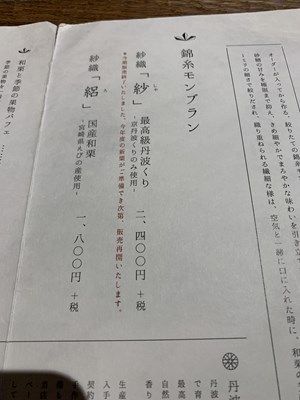 オーダーが入ってから作る、絞りたての
紗織の甘みを極限まで抑え、きめ細やかでまろやかな味わいを引き立
1ミリの細さで絞りだされ、織り重ねられる繊細な様は、空気と一緒に口に入れた時に、
和栗の
錦糸モンブラン
紗織「紗」しゃ 最高級丹波くり 二、四〇〇円+税
-京丹波くりのみ使用-
*今期販売終了いたしました。今年度の新栗がご準備でき次第、販売再開いたします。
紗織「絽」ろ 国産和栗 一、八〇〇円+税
-宮崎県えびの産使用-
和栗と季節の果物パフェ
季節の果物
丹波
丹波
で育
最高
自然
香り
生産
入手
契約